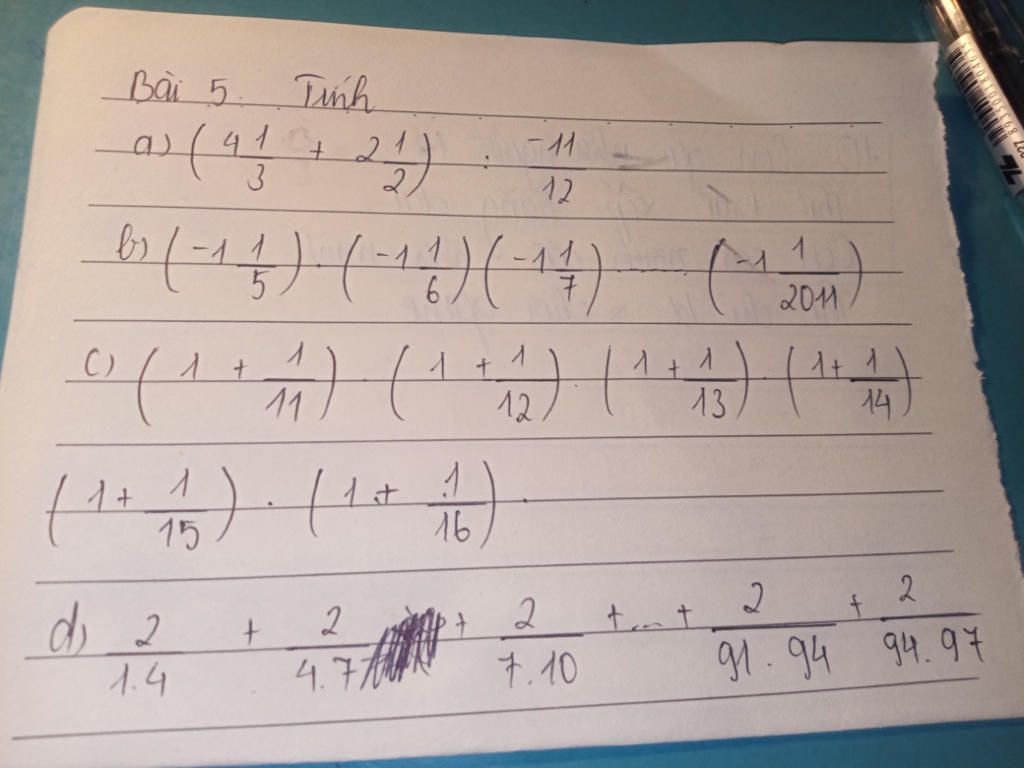 Bài 5. Tính
a) (4 1/3 + 2 1/2) : -11/12
b) (-1 1/5) . (-1 1/6) (-1 1/7) ....... (-1 1/2011)
c) (1 + 1/11) . (1 + 1/12) . (1 + 1/13) . (1 + 1/14)
(1 + 1/15) . (1 + 1/16) .
d) 2/1.4 + 2/4.7 + 2/7.10 + ... + 2/91.94 + 2/94.97